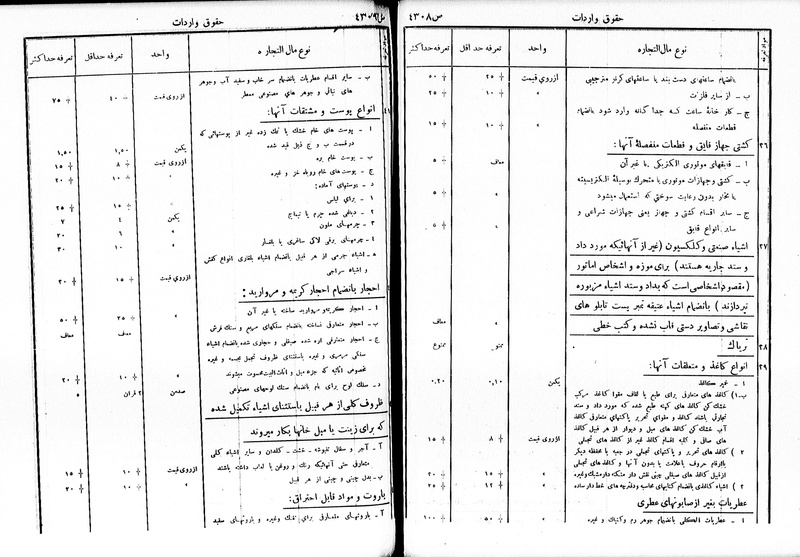 ص ۴۳۰۸
حقوق واردات
نوع مال التجاره
واحد
تعرفه حد اقل
تعرفه حداکثر
بانضمام ساعتهای دست بند یا ساعتهای کرنر مترجیبی
از روی قیمت
٪ ۲۵
٪ ۵۰
ب - از سایر فلزات
"
٪ ۱۰
٪ ۲۵
ج - کار خانهٔ ساعت که جدا گانه وارد شود بانضمام
قطعات منفصله
"
٪ ۱۰
٪ ۱۵
۲۶
کشتی جهاز قایق و قطعات منفصلهٔ آنها :
ا - قایقهای موتوری الکتریکی یا غیر آن
معاف
٪ ۵
ب - کشتی وجهازات موتوری یا متحرك بوسیلهٔ الکتریسیته
یا بخار بدون رعایت سوختی که استعمال میشود
"
٪ ۵
ج - سایر اقسام کشتی و جهاز یعنی جهازات شراعی و
سایر انواع قایق
"
٪ ۵
۲۷
اشیاء صنعتی وکلکسیون (غیر از آنهائیکه مورد داد
و سند جاریه هستند) برای موزه و اشخاص اماتور
(مقصود اشخاصی است که بداد وسند اشیاء مزبوره
نپردازند) بانضمام اشیاء عتیقه تمبر پست تابلو های
نقاشی وتصاویر دستی قاب نشده و کتب خطی
"
معاف
۲۸
تریاك
ممنوع
ممنوع
۲۹
انواع کاغذ و متعلقات آنها:
ا - غیر کاغذ
یکمن
۰,۱۰
۰,۲۰
ب-۱) کاغذ های متعارفی برای طبع یا لفاف مقوا کاغذ مرکب
خشك کن کاغذ های کهنه طبع شده که مورد داد و سند
تجارتی باشند کاغذ و مقوای تحریر پاکتهای متعارفی کاغذ
آب خشك کن کاغذ های مبل و دیوار از هر قبیل کاغذ
های صافی و کلیه اقسام کاغذ غیر از کاغذ های تجملی
از روی قیمت
٪ ۸
٪ ۱۵
۲) کاغذ های تحریر و پاکتهای تجملی در جعبه یا محفظه دیگر
باارقام حروف یاعلامت یا بدون آنها و کاغذ های تجملی
ازقبیل کاغذ های صیقلی چینی نقش دار مشبك دار مشبك وغیره
"
٪ ۱۰
٪ ۲۰
۳) اشیاء کاغذی بانضمام کتابهای محاسبه ودفترچه های خط دار ساده
"
٪ ۱۲
٪ ۲۵
عطریات بغیر از صابونهای عطری
۱ - عطریات الکلی بانضمام جوهر رم وکنیاك و غیره
"
٪ ۵۰
٪ ۱۰۰
ص ۴۳۰۹
حقوق واردات
نوع مال التجاره
واحد
تعرفه حداقل
تعرفه حداکثر
ب - سایر اقسام عطریات بانضمام سرخاب و سفید آب وجوهر
های نباتی و جوهر های مصنوعی معطر
از روی قیمت
٪ ۴۰
٪ ۷۵
انواع پوست و مشتقات آنها:
ا - پوست های خام خشك یا نمك زده غیر از پوستهائی که
درقسمت ب و ج ذیل قید شده
یکمن
۱,۵۰
۱,۵۰
ب - پوست خام بره
از روی قیمت
٪ ۸
٪ ۱۵
ج - پوست های خام روباه خز و غیره
"
٪ ۱۰
٪ ۲۰
د - پوستهای آماده:
۱ - برای لباس
"
٪ ۱۵
٪ ۲۵
۲ - دباغی شده چرم یا تیماج
یکمن
۴
۷
۳ - چرمهای ملون
"
۶
۲۰
٤ - چرمهای برقی لاکی ساغری یا بلغار
"
۱۰
۳۰
ه - اشیاء چرمی از هر قبیل بانضمام اشیاء بلغاری انواع کفش
و اشیاء سراجی
از روی قیمت
٪ ۱۵
٪ ۳۰
احجار بانضمام احجار کریمه و مروارید :
ا - احجار کریمه و مروارید ساخته یا غیر آن
"
٪ ۲۵
٪ ۵۰
ب - احجار متعارفی نساخته بانضمام سنگهای مرمر و سنك فرش
معاف
معاف
ج - احجار متعارفی تراشیده شده صیقلی و حجاری شده بانضمام اشیاء
سنگی مرمری و غیره باستثنای ظروف تجملی مجسمه و غیره
مخصوص ابنیه که جزء مبل و اثاث البیت محسوب میشوند
"
٪ ۱۰
٪ ۲۰
د - سنك لوح برای بام بانضمام سنك لوحهای مصنوعی
صدمن
۲ قران
ظروف گلی از هر قبیل باستثنای اشیاء تکمیل شده
که برای زینت یا مبل خانها بکار میروند
آ - آجر و سفال تنبوشه - خشت - گلدان و سایر اشیاء گلی
متعارفی حتی آنهائیکه رنك و روغن یا لعاب داشته باشند
از روی قیمت
٪ ۱۰
٪ ۱۵
ب - بدل چینی و چینی از هر قبیل
"
٪ ۱۰
٪ ۲۰
باروت و مواد قابل احتراق:
آ - باروتهای متعارفی برای تفنك وغیره و باروتهای سفید